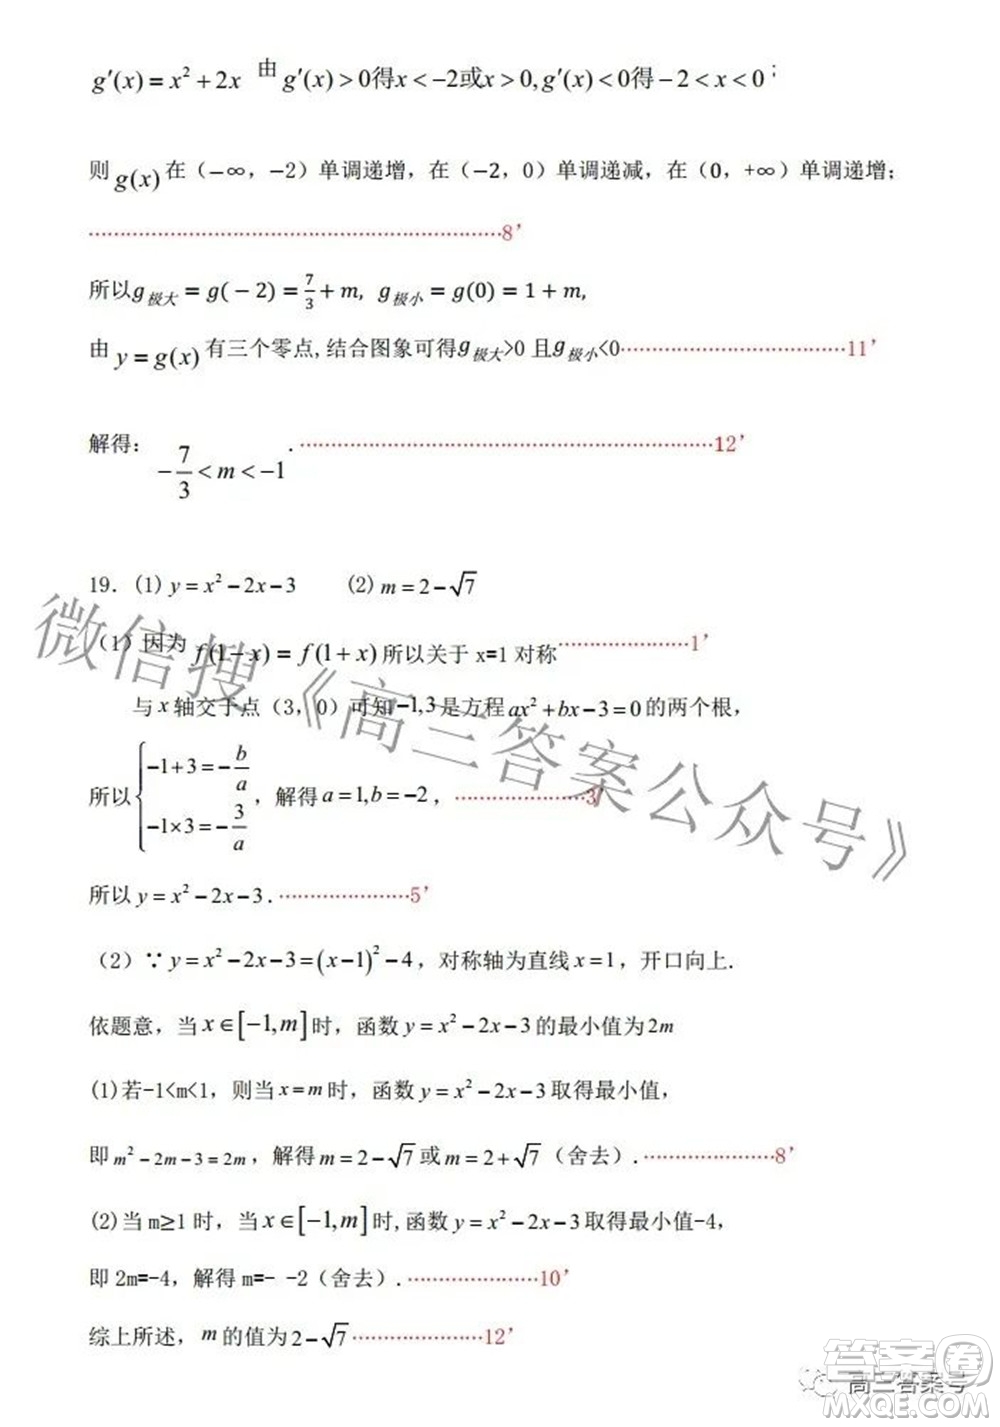 g′(x)=x²+2x 由 g′(x)>0得x<−2或x>0,g′(x)<0得−2<x<0;
则g(x)在（−∞，−2）单调递增，在（−2，0）单调递减，在（0，+∞）单调递增；
……………………………………………………8’
所以g极大=g(−2)=7/3+m, g极小=g(0)=1+m,
由y=g(x)有三个零点,结合图象可得g极大>0 且g极小<0……………………………11’
解得： −7/3<m<−1 . ……………………………………………………12’
19. (1) y=x²−2x−3 (2) m=2−√7
（1）因为 f(1−x)=f(1+x)所以关于 x=1 对称………………1’
与 x 轴交于点（3，0）可知−1,3是方程ax²+bx−3=0的两个根，
所以{−1+3=−b/a
−1×3=−3/a ，解得a=1,b=−2，………………3’
所以 y=x²−2x−3.………………5’
（2）∵ y=x²−2x−3=(x−1)²−4，对称轴为直线x=1，开口向上.
依题意，当x∈[−1,m]时，函数y=x²−2x−3的最小值为2m
(1)若-1<m<1，则当x=m时，函数y=x²−2x−3取得最小值，
即m²−2m−3=2m，解得m=2−√7或m=2+√7（舍去）.………………8’
(2)当 m≥1 时，当x∈[−1,m]时,函数y=x²−2x−3取得最小值-4，
即 2m=-4，解得 m=- -2（舍去）.………………10’
综上所述，m的值为2−√7………………12’
微信搜《高三答案公众号》
高三答案号
答案圈
MXQE.COM